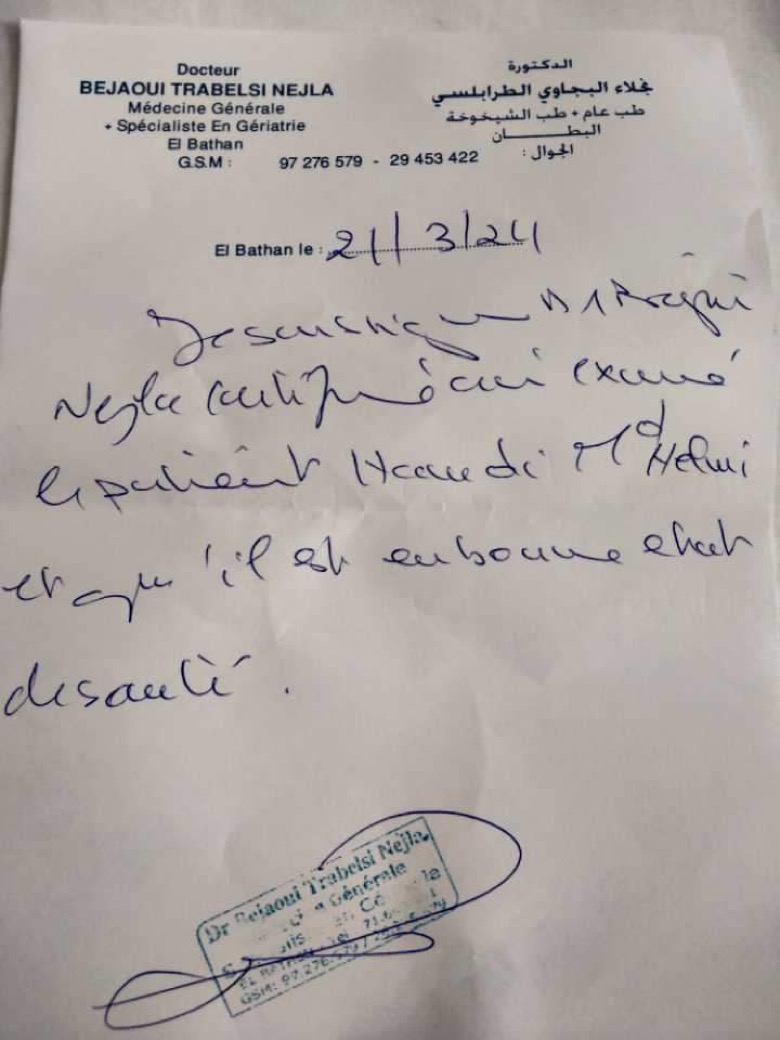 Docteur
BEJAOUI TRABELSI NEJLA
Médecine Générale
+ Spécialiste En Gériatrie
El Bathan
G.S.M : 97 276 579 - 29 453 422
الدكتورة
نجلاء البجاوي الطرابلسي
طب عام + طب الشيخوخة
البطان
الجوال :
El Bathan le : 21/3/24
Je soussigné
Nejla certifie avoir examiné
le patient Hamdi Md Helmi
et qu'il est en bonne état
de santé.
Dr Bejaoui Trabelsi Nejla
Générale
EL BATHAN
GSM: 97.276.579 /